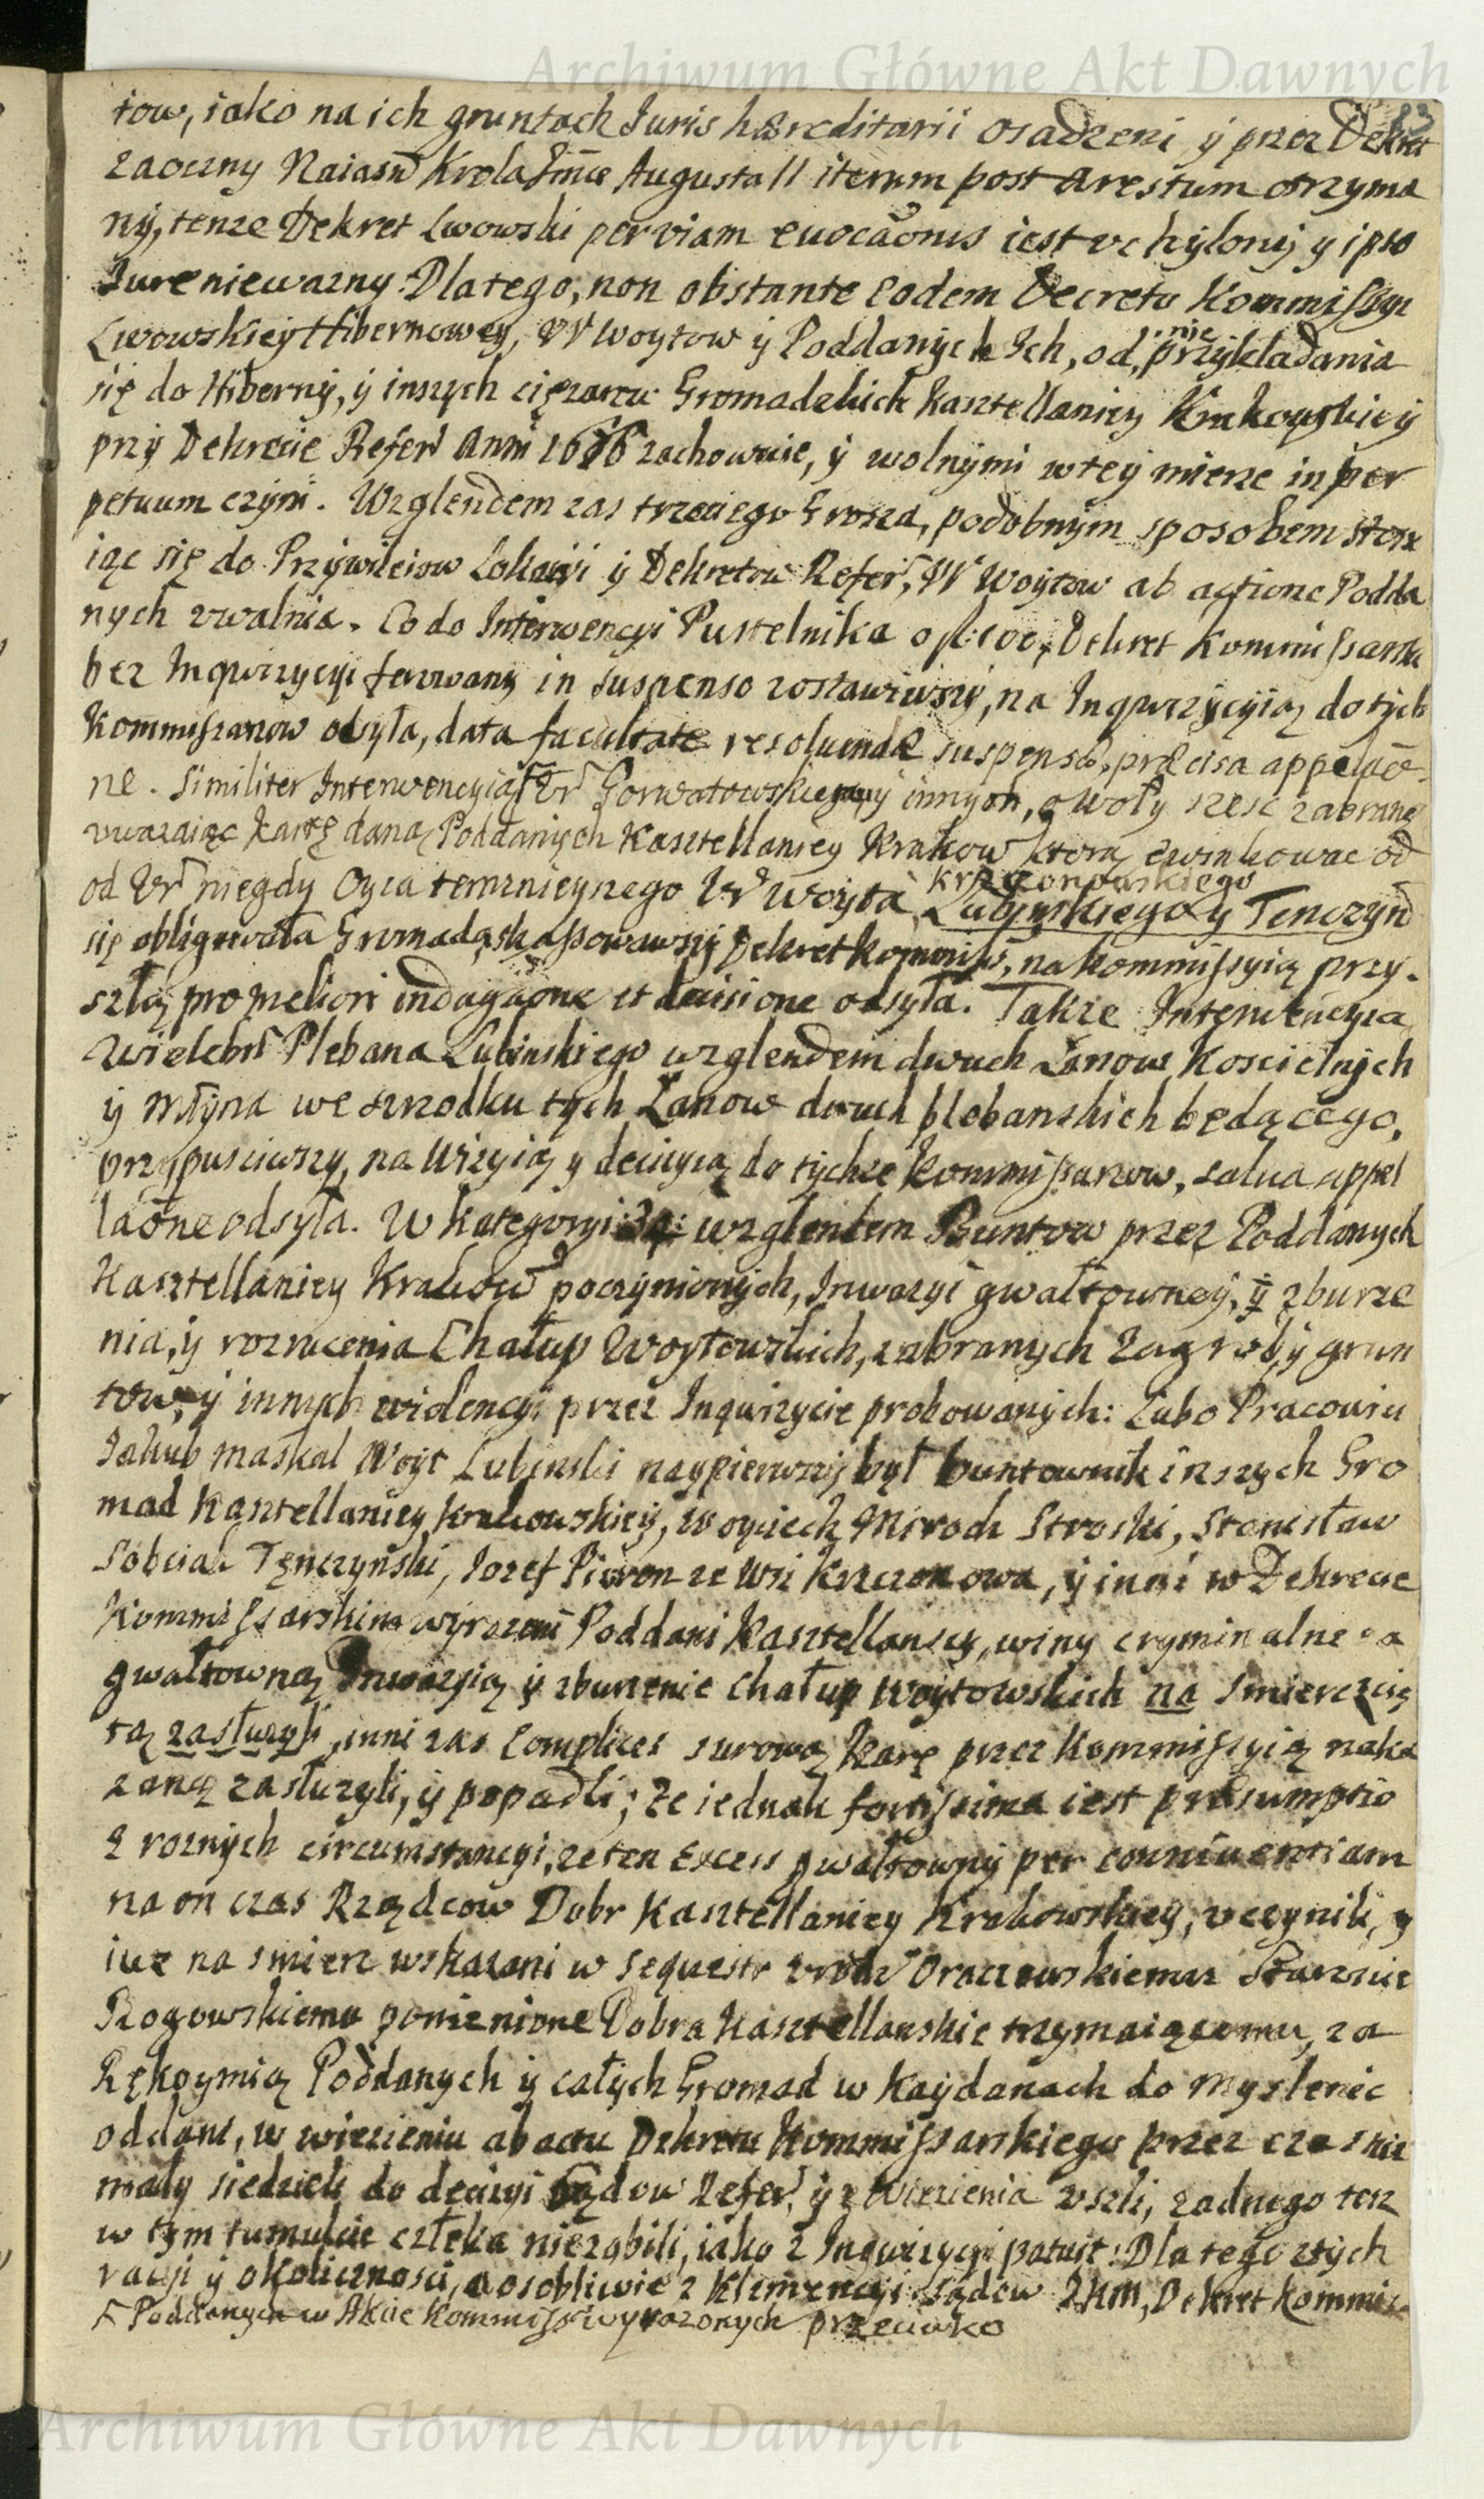 Archiwum Główne Akt Dawnych
83
tow, iako na ich gruntach Juris hæreditarii osadzeni y przez Dekret
zaoczny Naiasń Krola Jmći Augusta II iterum post arestum otrzyma
ny, tenze Dekret Lwowski per viam euocaōnis iest vchylony y ipso
Jure niewazny. Dlatego, non obstante eodem Decreto Kommissyi
Lwowskiey Hibernowey, Wr Woytow y Poddanych Ich, od nie przykladania
się do Hiberny, y inszych cięzarow Gromadzkich Kasztellaniey Krakowskiey
przy Dekrecie Refer Anni 1676 zachowuie, y wolnymi w tey mierze in per
petuum czyni. Wzglendem zas trzeciego Grosza, podobnym sposobem stosu
iąc się do Przywileiow Lokacyi y Dekretow Refer, Wr Woytow ab actione Podda
nych vwalnia. Co do Interwencyi Pustelnika o fl: 100, Dekret Kommissarski
bez Inqwizycyi ferowany in suspenso zostawiwszy, na Inqwizycyią do tych
Kommissarzow odsyła, data facultate resoluendæ suspensæ, præcisa appellaō
ne. Similiter Interwencyią Ur Gorwatowskiego y innych, o woły szesc zabrane
vwazaiąc kartę daną Poddanych Kasztellaniey Krakow ktorą ewinkowac od
od Ur niegdy Oyca teraznieyszego Ur Woyta Lubinskiego y Tenczyń
Krzczonowskiego
się obligowała Gromada, skassowawszy Dekret Kommiss, na Kommissyią przy-
szłą pro meliori indagaōne et decisione odsyła. Takze Interwencyia
Wielebń Plebana Lubinskiego wzglendem dwuch Łanow Koscielnych
y Młyna we szrodku tych Łanow dwuch plebanskich będącego,
przypusciwszy, na Wizyią y decizyią do tychze Kommissarzow, salua appel
laōne odsyła. W kategoryi 3a: wzglendem Buntow przez Poddanych
Kasztellaniey Krakow poczynionych, Inwazyi gwałtowney, y zburze
nia, y rozrucenia Chałup Woytowskich, zabranych Zagrod, y grun
tow, y innych widencyi przez Inquizycie probowanych: Lubo Pracowici
Jakub Maskal Woyt Lubinski naypierwszy był buntownik inszych Gro
mad Kasztellaniey Krakowskiey, Woyciech Miroch Stroski, Stanisław
Sobciak Tęnczyński, Jozef Pioron ze Wsi Krzczonowa, y inni w Dekrecie
Kommissarskim wyrazeni Poddani Kasztellaniey, winy cryminalne za
gwałtowną Inwazyią y zburzenie Chałup Woytowskich na smierc scię
tą zasłuzyli, inni zas Complices surową karę przez Kommissyią naka
zaną zasłuzyli, y popadli; ze iednak fortissima iest præsumptio
z roznych circumstancyi, ze ten Excess gwałtowny per conniuentiam
na on czas Rządcow Dobr Kasztellaniey Krakowskiey, vczynili, y
iuz na smierc wskazani w sequestr vrodz Oraczewskiemu Staroscie
Rogowskiemu pomienione Dobra Kasztellanskie trzymaiącemu, za
Rękoymią Poddanych y całych Gromad w Kaydanach do Myslenic
oddani, w wiezieniu ab actu Dekretu Kommissarskiego przez czas nie
mały siedzieli do decizyi Sądow Refer, y z Wiezienia vszli, zadnego tesz
w tym tumulcie człeka niezabili, iako z Inquizycyi patuit: Dla tego z tych
racyi y okolicznosci, a osobliwie z Klemencyi Sądow JKM, Dekret Kommis
Poddanych w Akcie Kommissyi wyrazonych przeciwko
Archiwum Główne Akt Dawnych